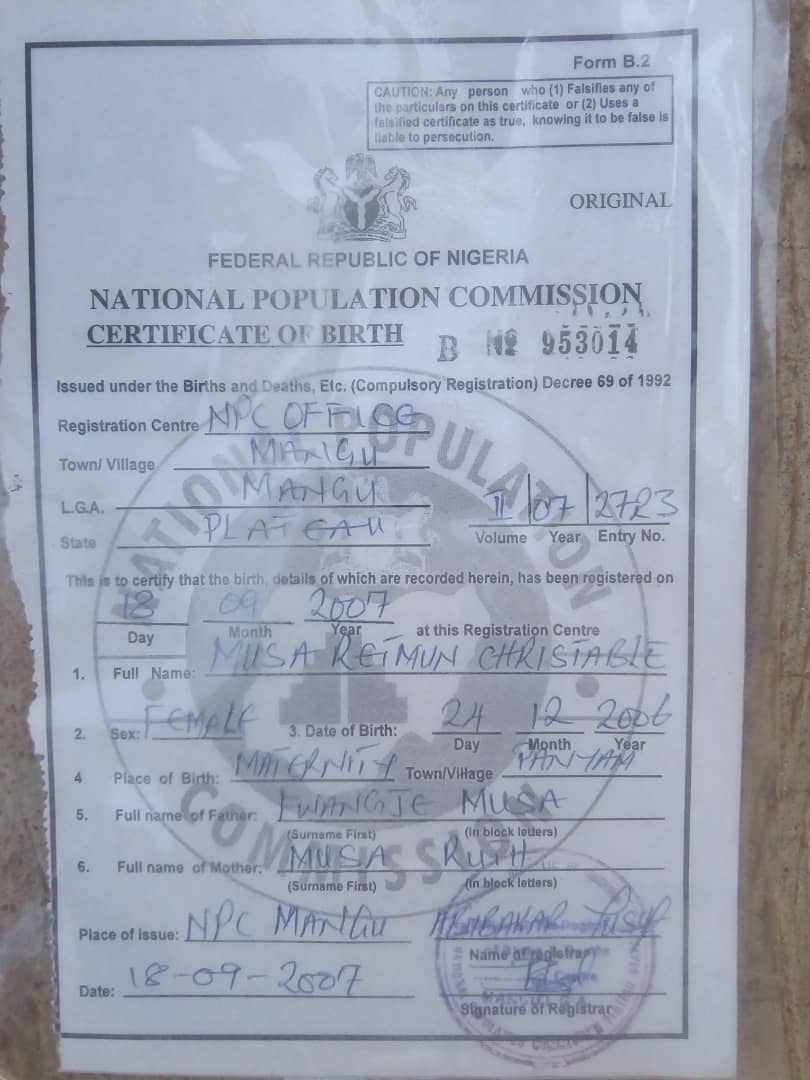 Form B.2
CAUTION: Any person who (1) Falsifies any of
the particulars on this certificate or (2) Uses a
falsified certificate as true, knowing it to be false is
liable to persecution.
ORIGINAL
FEDERAL REPUBLIC OF NIGERIA
NATIONAL POPULATION COMMISSION
CERTIFICATE OF BIRTH B No 953014
Issued under the Births and Deaths, Etc. (Compulsory Registration) Decree 69 of 1992
Registration Centre NPC OFFICE
Town/ Village MANGU
L.G.A. MANGU
State PLATEAU
II 07 2723
Volume Year Entry No.
This is to certify that the birth, details of which are recorded herein, has been registered on
18 09 2007
Day Month Year at this Registration Centre
1. Full Name: MUSA RETMUN CHRISTABLE
2. Sex: FEMALE 3. Date of Birth: 24 12 2006
Day Month Year
4 Place of Birth: MATERNITY Town/Village PANYAM
5. Full name of Father: MUSA
(Surname First) (In block letters)
6. Full name of Mother: MUSA RUTH
(Surname First) (In block letters)
Place of issue: NPC MANGU
Name of registrar
Date: 18-09-2007
Signature of Registrar
NATIONAL POPULATION COMMISSION